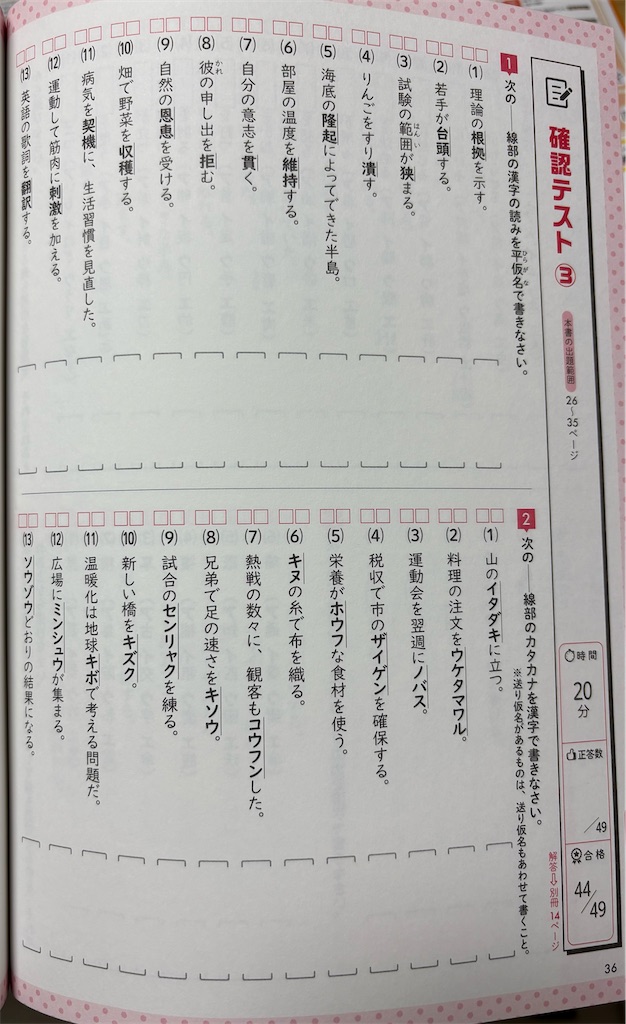 確認テスト③
本書の出題範囲 26〜35ページ
時間 20分
正答数 /49
合格 44/49
解答⇨別冊14ページ
1 次の――線部の漢字の読みを平仮名で書きなさい。
(1) 理論の根拠を示す。
(2) 若手が台頭する。
(3) 試験の範囲が狭まる。
(4) りんごをすり潰す。
(5) 海底の隆起によってできた半島。
(6) 部屋の温度を維持する。
(7) 自分の意志を貫く。
(8) 彼の申し出を拒む。
(9) 自然の恩恵を受ける。
(10) 畑で野菜を収穫する。
(11) 病気を契機に、生活習慣を見直した。
(12) 運動して筋肉に刺激を加える。
(13) 英語の歌詞を翻訳する。
2 次の――線部のカタカナを漢字で書きなさい。
※送り仮名があるものは、送り仮名もあわせて書くこと。
(1) 山のイタダキに立つ。
(2) 料理の注文をウケタマワル。
(3) 運動会を翌週にノバス。
(4) 税収で市のザイゲンを確保する。
(5) 栄養がホウフな食材を使う。
(6) キヌの糸で布を織る。
(7) 熱戦の数々に、観客もコウフンした。
(8) 兄弟で足の速さをキソウ。
(9) 試合のセンリャクを練る。
(10) 新しい橋をキズク。
(11) 温暖化は地球キボで考える問題だ。
(12) 広場にミンシュウが集まる。
(13) ソウゾウどおりの結果になる。
36